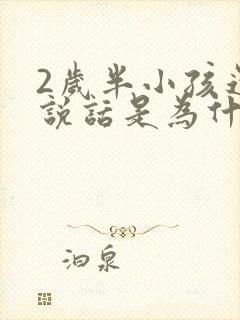 2歲半小孩
說話是為什
泊泉